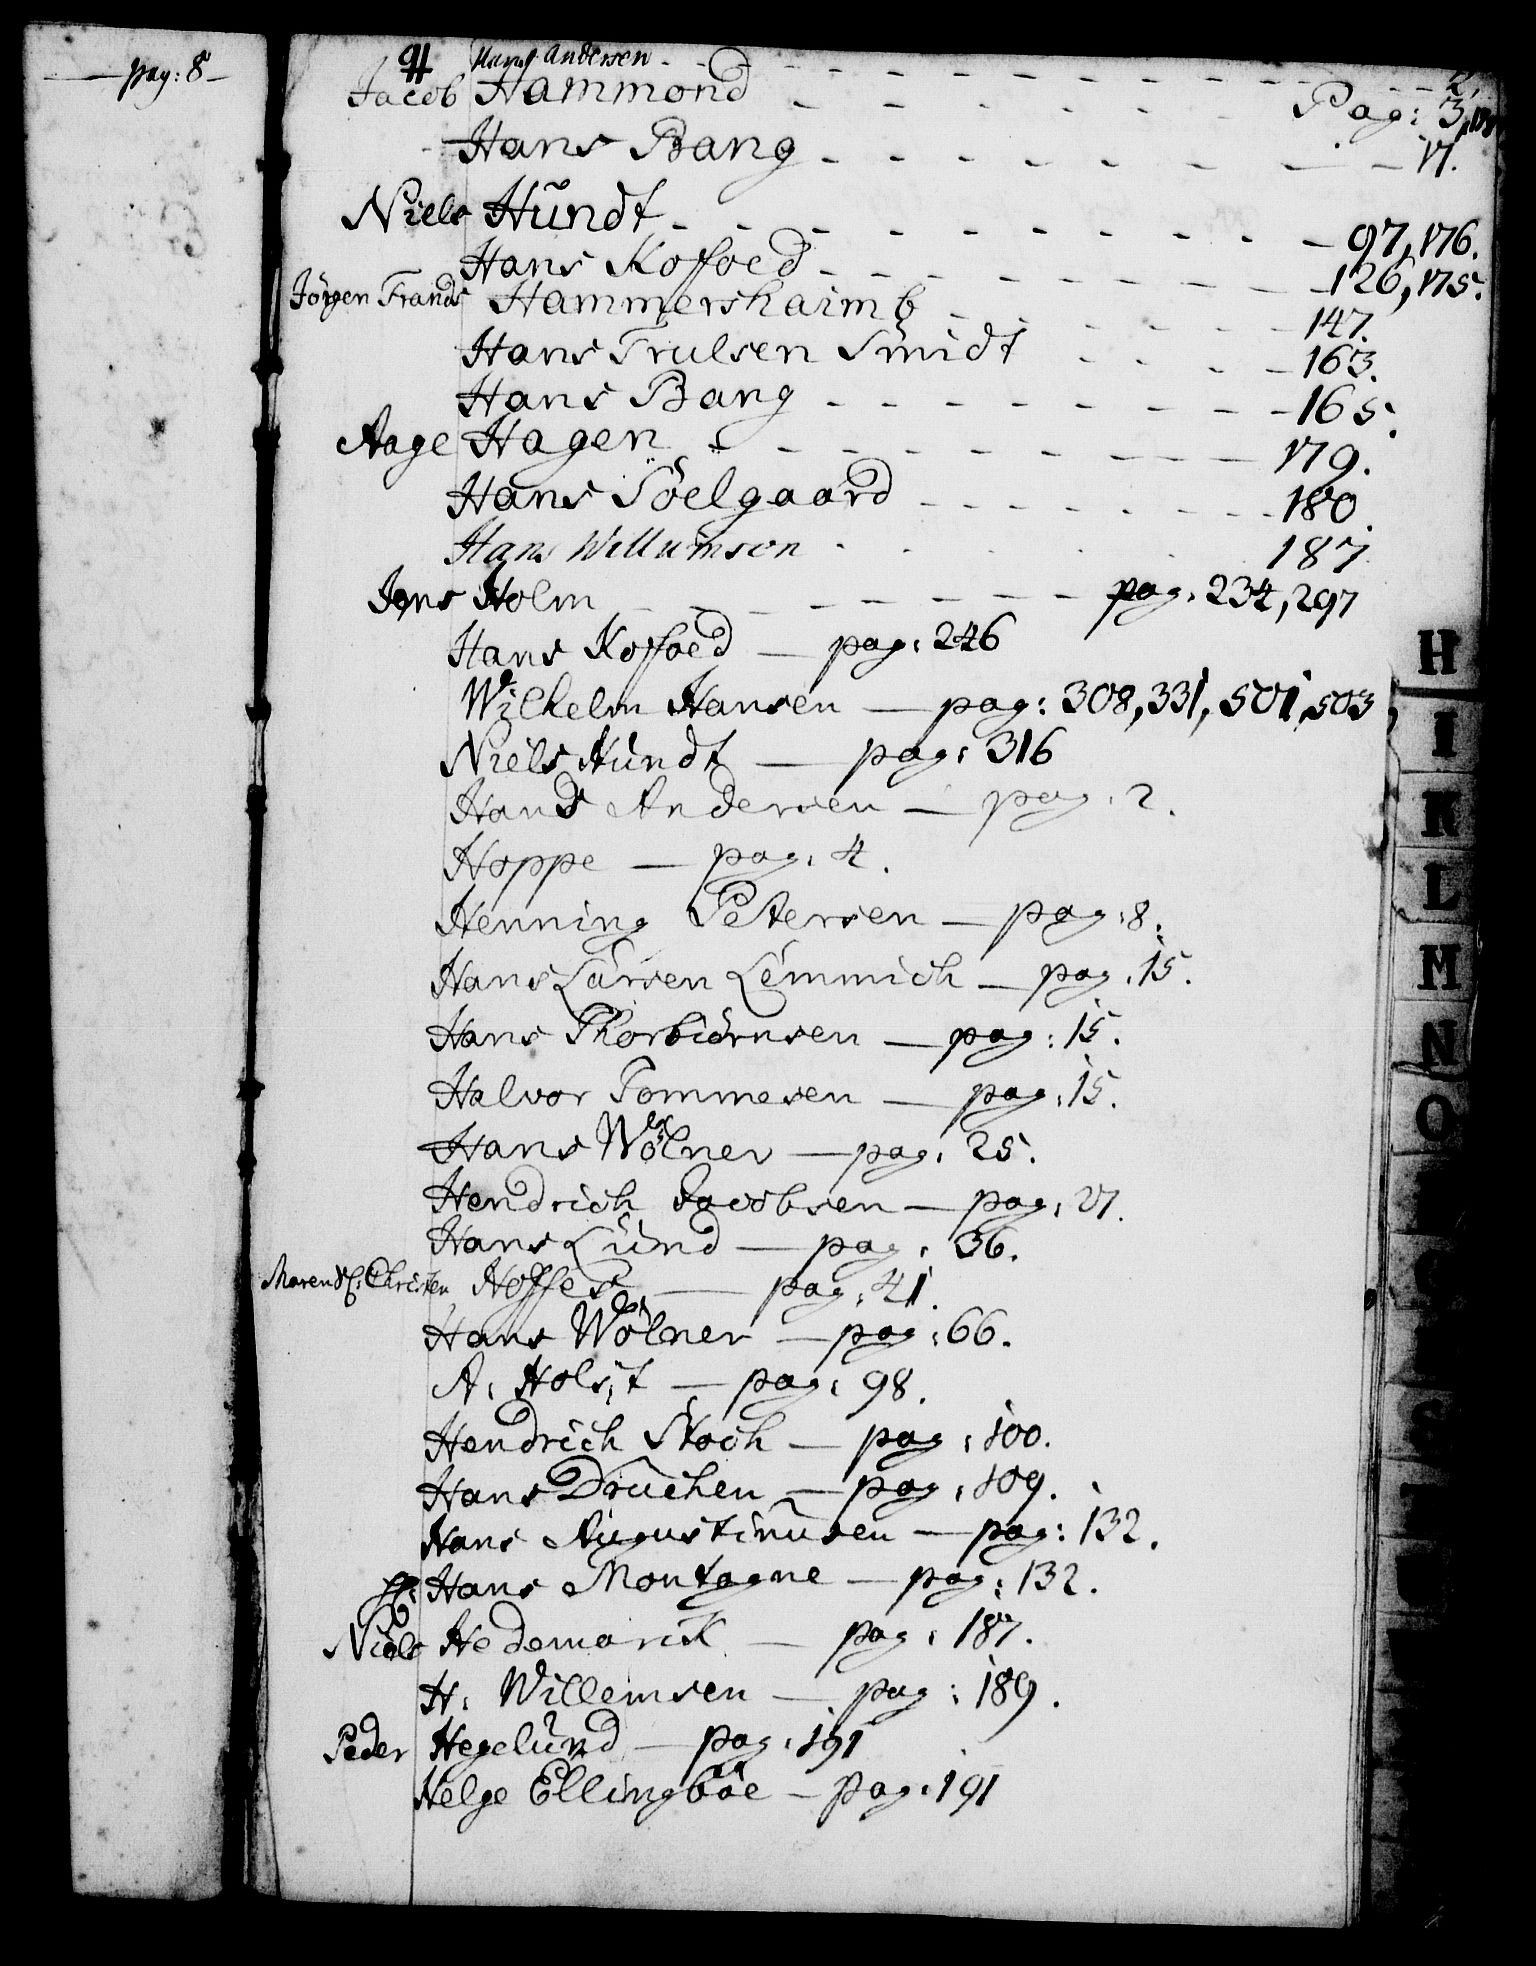 pag: 8
H Hans Andersen - - - 2,
Jacob Hammond - - - Pag: 3,
Hans Bang - - - 17.
Niels Hundt - - - 97, 176.
Hans Koffoed - - - 126, 175.
Jörgen Frands Hammershaimb - - - 147.
Hans Trulsen Smidt - - - 163.
Hans Bang - - - 165.
Aage Hagen - - - 179.
Hans Söelgaard - - - 180.
Hans Willumson - - - 187
Jens Holm - - - pag. 234, 297
Hans Koffoed — pag: 246
Wilhelm Hansen — pag: 308, 331, 501, 503
Niels Hundt — pag: 316
Hans Andersen — pag. 2.
Hoppe — pag. 4.
Henning Petersen — pag: 8.
Hans Larsen Lemmich — pag. 15.
Hans Thorbiörnsen — pag: 15.
Halvor Tommesen — pag: 15.
Hans Wölner — pag: 25.
Hendrich Jacobsen — pag: 27.
Hans Lund — pag: 36.
Maren Christen Hoffes — pag: 41.
Hans Wölner — pag: 66.
A: Holst — pag: 98.
Hendrich Stoch — pag: 100.
Hans Druchen — pag: 109.
Hans Augustinusen — pag: 132.
Hr: Hans Montagne — pag: 132.
Niels Hedemarck — pag: 187.
H: Willemsen — pag: 189.
Peder Hegelund — pag: 191
Helge Ellingböe — pag: 191
H
I
K
L
M
N
O